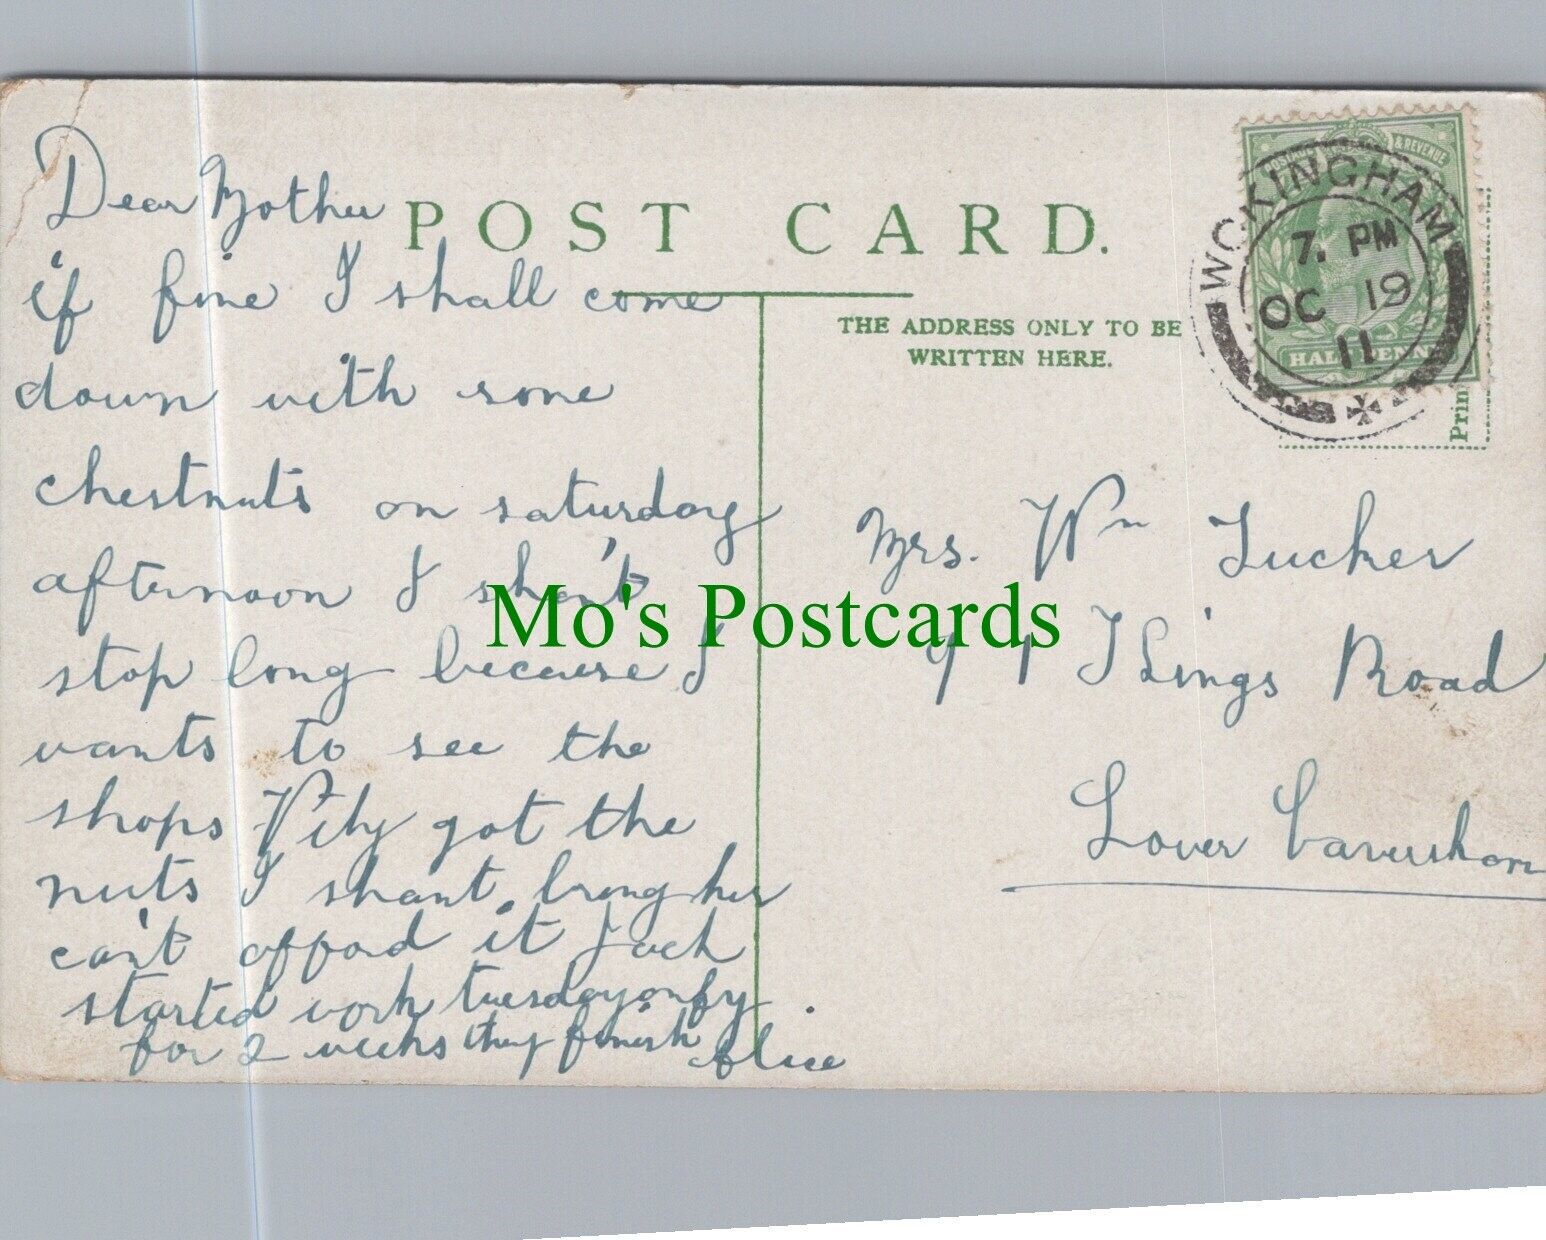 Dear Mother
if fine I shall come
down with some
chestnuts on saturday
afternoon I shan't
stop long because I
wants to see the
shops Pity got the
nuts I shant bring her
can't afford it Jack
started work tuesday only
for 2 weeks they finish Alice
POST CARD.
THE ADDRESS ONLY TO BE
WRITTEN HERE.
POSTAGE & REVENUE
HALFPENNY
WOKINGHAM
7. PM
OC 19
11
Prin
Mrs. Wm Tucker
Kings Road
Lower Caversham
Mo's Postcards